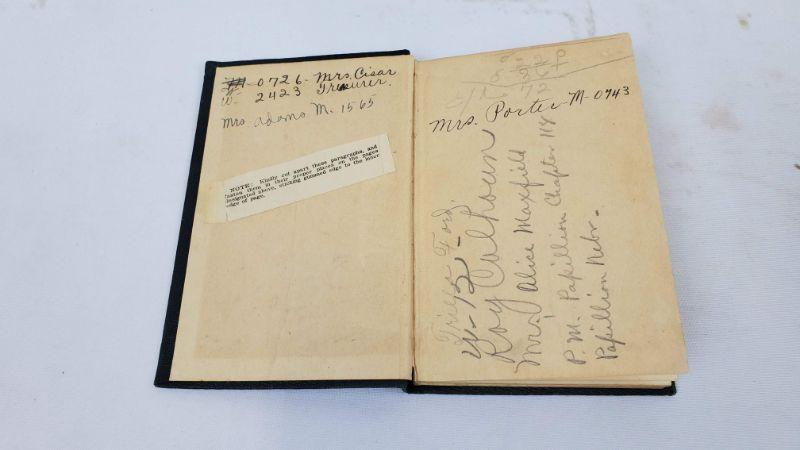 0726 - Mrs. Cisar
W- 2423 Treasurer.
Mrs Adams M. 1565
NOTE: Kindly cut apart these paragraphs, and
fasten them in their proper places on the pages
designated above, sticking gummed edge to the inner
edge of page.
Mrs. Porter M-0743
Ford.
Roy Calhoun
Mrs. Alice Maxfield
P. M. Papillion Chapter 118
Papillion Nebr.